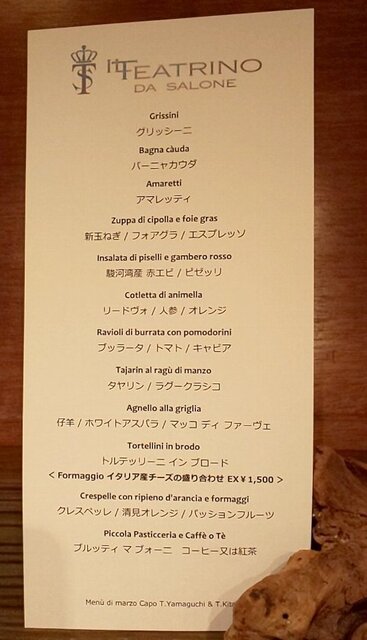 IL TEATRINO
DA SALONE
Grissini
グリッシーニ
Bagna càuda
バーニャカウダ
Amaretti
アマレッティ
Zuppa di cipolla e foie gras
新玉ねぎ / フォアグラ / エスプレッソ
Insalata di piselli e gambero rosso
駿河湾産 赤エビ / ピゼッリ
Cotletta di animella
リードヴォ / 人参 / オレンジ
Ravioli di burrata con pomodorini
ブッラータ / トマト / キャビア
Tajarin al ragù di manzo
タヤリン / ラグークラシコ
Agnello alla griglia
仔羊 / ホワイトアスパラ / マッコ ディ ファーヴェ
Tortellini in brodo
トルテッリーニ イン ブロード
< Formaggio イタリア産チーズの盛り合わせ EX¥1,500 >
Crespelle con ripieno d'arancia e formaggi
クレスペッレ / 清見オレンジ / パッションフルーツ
Piccola Pasticceria e Caffè o Tè
ブルッティ マ ブォーニ コーヒー又は紅茶
Menù di marzo Capo T.Yamaguchi & T.Kita